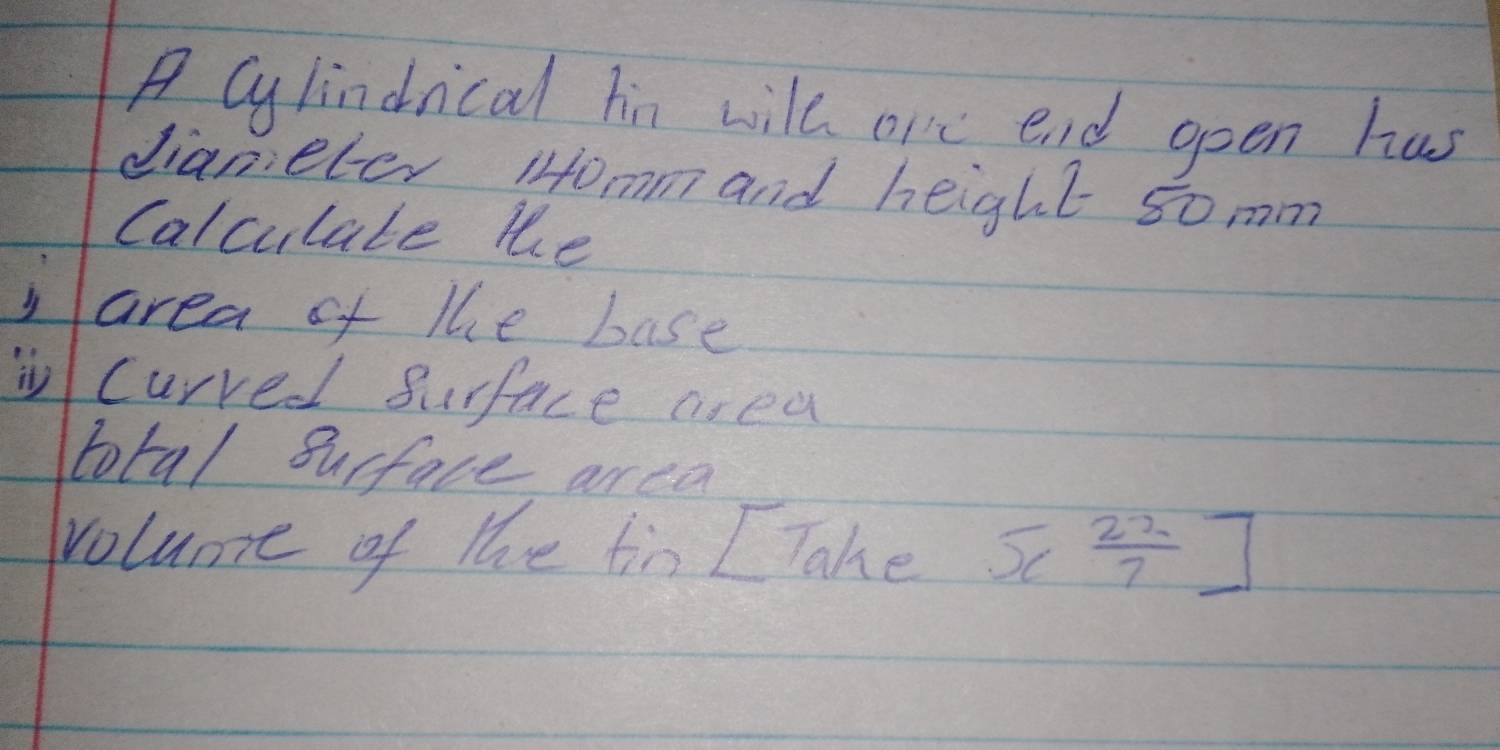 A Cylindrical tin with one end open has
diameter 140mm and height 50mm
Calculate the
i) area of the base
ii) Curved Surface area
total Surface area
volume of the tin [Take π 22/7]